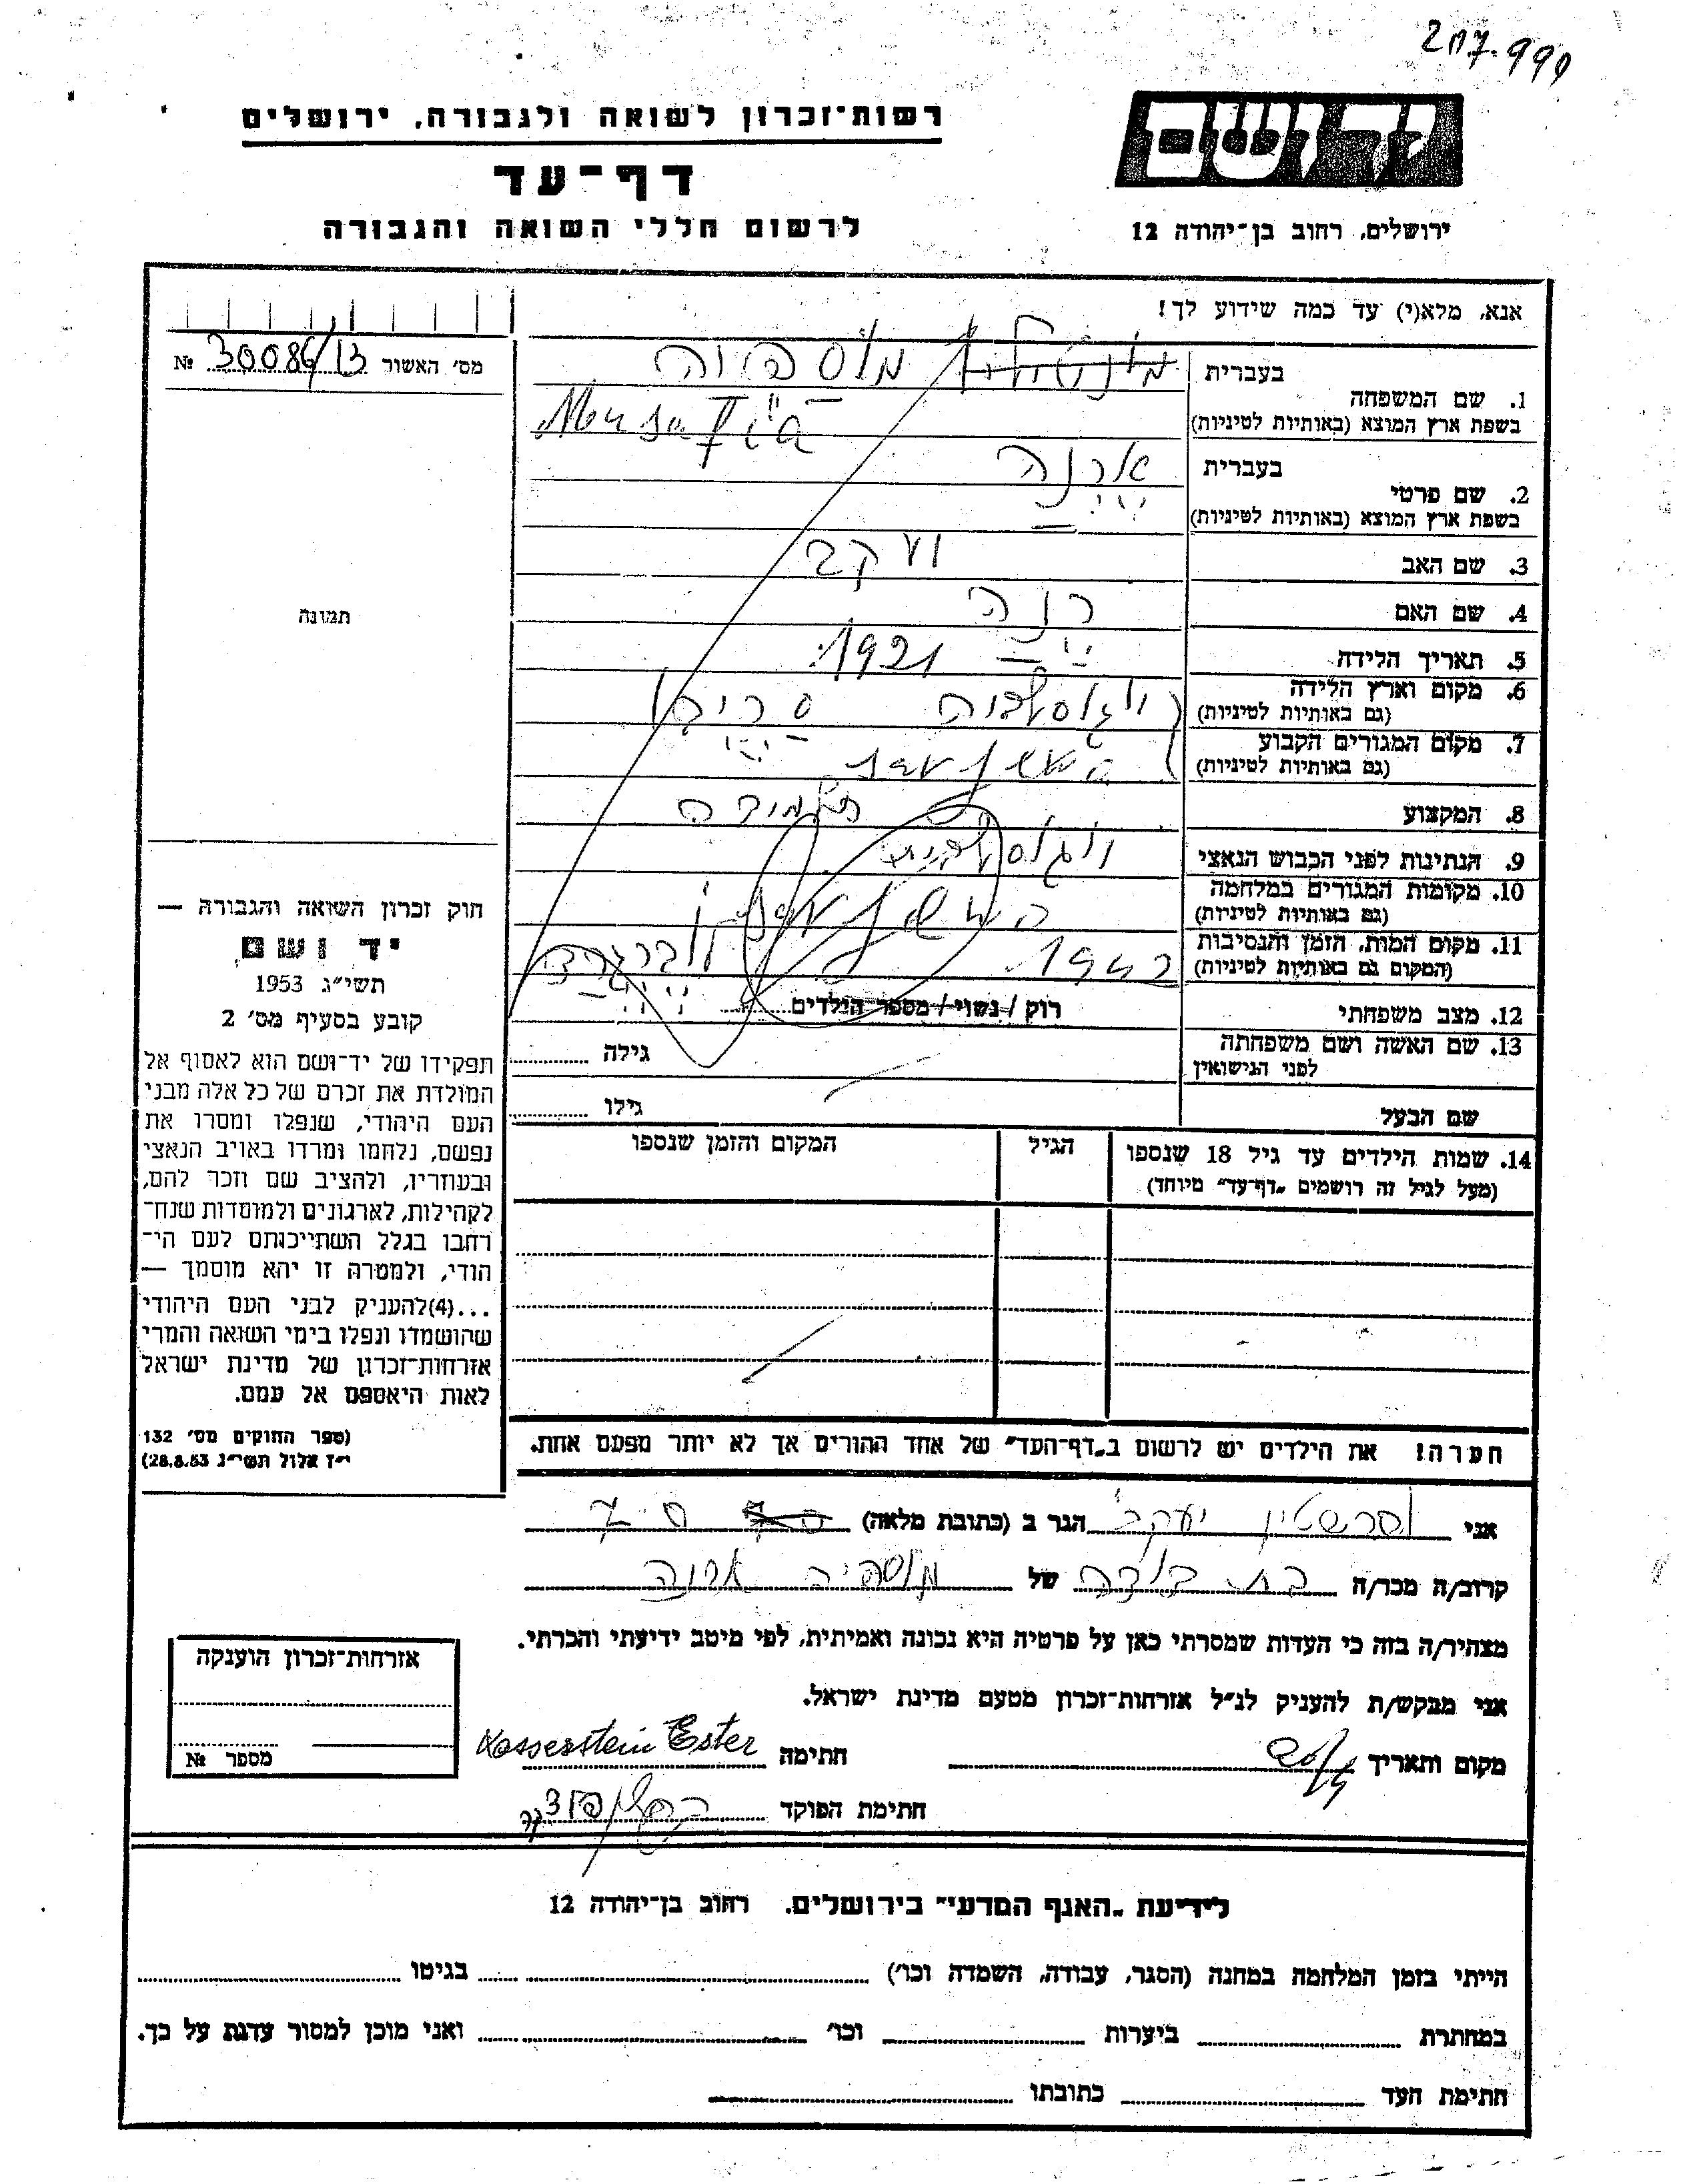 207.990
רשות־זכרון לשואה ולגבורה, ירושלים
דף־עד
לרשום חללי השואה והגבורה
יד ושם
ירושלים, רחוב בן־יהודה 12
אנא, מלא(י) עד כמה שידוע לך!
מס׳ האשור 30086/13 №
תמונה
בעברית
1. שם המשפחה
בשפת ארץ המוצא (באותיות לטיניות)
מוספיה
Musafia
בעברית
2. שם פרטי
בשפת ארץ המוצא (באותיות לטיניות)
ארנה
3. שם האב יעקב
4. שם האם רנה
5. תאריך הלידה 1921
6. מקום וארץ הלידה
(גם באותיות לטיניות)
7. מקום המגורים הקבוע
(גם באותיות לטיניות)
8. המקצוע תלמידה
9. הנתינות לפני הכבוש הנאצי
10. מקומות המגורים במלחמה
(גם באותיות לטיניות)
11. מקום המות, הזמן והנסיבות
(המקום גם באותיות לטיניות)
194
12. מצב משפחתי רוק / נשוי / מספר הילדים
13. שם האשה ושם משפחתה
לפני הנישואין
גילה
שם הבעל גילו
14. שמות הילדים עד גיל 18 שנספו
(מעל לגיל זה רושמים „דף־עד״ מיוחד)
הגיל
המקום והזמן שנספו
הערה! את הילדים יש לרשום ב„דף־העד״ של אחד ההורים אך לא יותר מפעם אחת.
חוק זכרון השואה והגבורה —
יד ושם
תשי״ג 1953
קובע בסעיף מס׳ 2
תפקידו של יד־ושם הוא לאסוף אל
המולדת את זכרם של כל אלה מבני
העם היהודי, שנפלו ומסרו את
נפשם, נלחמו ומרדו באויב הנאצי
ובעוזריו, ולהציב שם וזכר להם,
לקהילות, לארגונים ולמוסדות שנח־
רחבו בגלל השתייכותם לעם הי־
הודי, ולמטרה זו יהא מוסמך —
...(4)להעניק לבני העם היהודי
שהושמדו ונפלו בימי השואה והמרי
אזרחות־זכרון של מדינת ישראל
לאות היאספם אל עמם.
(ספר החוקים מס׳ 132
י״ז אלול תשי״ג 28.8.53)
אני יעקב הגר ב (כתובת מלאה)
קרוב/ה מכר/ה בת דודה של מוספיה ארנה
מצהיר/ה בזה כי העדות שמסרתי כאן על פרטיה היא נכונה ואמיתית, לפי מיטב ידיעתי והכרתי.
אני מבקש/ת להעניק לנ״ל אזרחות־זכרון מטעם מדינת ישראל.
מקום ותאריך חתימה Lasserstein Ester
חתימת הפוקד
אזרחות־זכרון הוענקה
מספר №
לידיעת „האגף המדעי״ בירושלים. רחוב בן־יהודה 12
הייתי בזמן המלחמה במחנה (הסגר, עבודה, השמדה וכו׳) בגיטו
במחתרת ביערות וכו׳ ואני מוכן למסור עדות על כך.
חתימת העד כתובתו